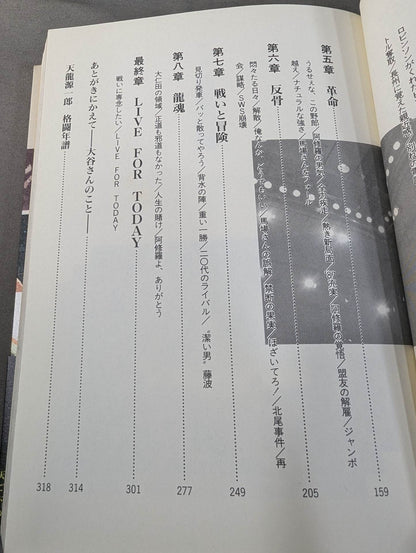 トル奪取／長州に
第五章 革命 159
うるせえな、この野郎／阿修羅の／阿修羅の覚悟／盟友の解雇／ジャンボ
越え／ナチュラルな強さ／馬場さんをフォール
第六章 反骨 205
悶々たる日々／解散／俺なんか、／馬場さんの誤解／禁断の果実／ほざいてろ！／北尾事件／再
会／謀略／WS崩壊
第七章 戦いと冒険 249
見切り発車／パッと散ってやろう／背水の陣／重い一勝／二〇代のライバル／“潔い男”藤波
第八章 龍魂 277
大仁田の領域／正道も邪道もなかった／人生の賭け／阿修羅よ、ありがとう
最終章 LIVE FOR TODAY 301
戦いに専念したい／LIVE FOR TODAY
あとがきにかえて――大谷さんのこと―― 314
天龍源一郎 格闘年譜 318